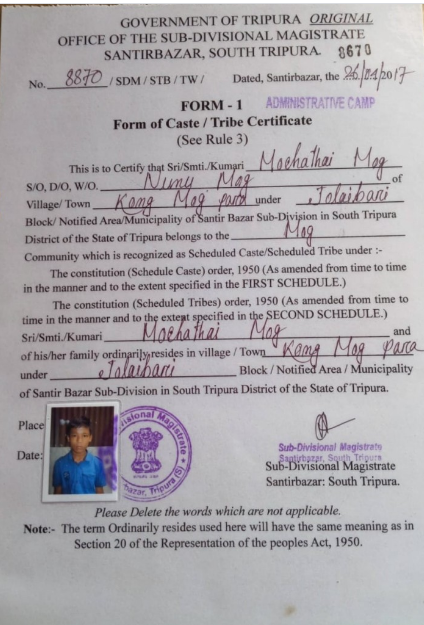 GOVERNMENT OF TRIPURA ORIGINAL
OFFICE OF THE SUB-DIVISIONAL MAGISTRATE
SANTIRBAZAR, SOUTH TRIPURA. 8670
No. 8870 / SDM / STB / TW / Dated, Santirbazar, the 26/01/2017
FORM - 1 ADMINISTRATIVE CAMP
Form of Caste / Tribe Certificate
(See Rule 3)
This is to Certify that Sri/Smti./Kumari Mochathai Mog
S/O, D/O, W/O. Nunu Mog of
Village/ Town Kang Mog para under Jolaibari
Block/ Notified Area/Municipality of Santir Bazar Sub-Division in South Tripura
District of the State of Tripura belongs to the Mog
Community which is recognized as Scheduled Caste/Scheduled Tribe under :-
The constitution (Schedule Caste) order, 1950 (As amended from time to time
in the manner and to the extent specified in the FIRST SCHEDULE.)
The constitution (Scheduled Tribes) order, 1950 (As amended from time to
time in the manner and to the extent specified in the SECOND SCHEDULE.)
Sri/Smti./Kumari Mochathai Mog and
of his/her family ordinarily resides in village / Town Kang Mog para
under Jolaibari Block / Notified Area / Municipality
of Santir Bazar Sub-Division in South Tripura District of the State of Tripura.
Place
Date:
Sub-Divisional Magistrate
Santirbazar, South Tripura
Sub-Divisional Magistrate
Santirbazar: South Tripura.
Please Delete the words which are not applicable.
Note:- The term Ordinarily resides used here will have the same meaning as in
Section 20 of the Representation of the peoples Act, 1950.